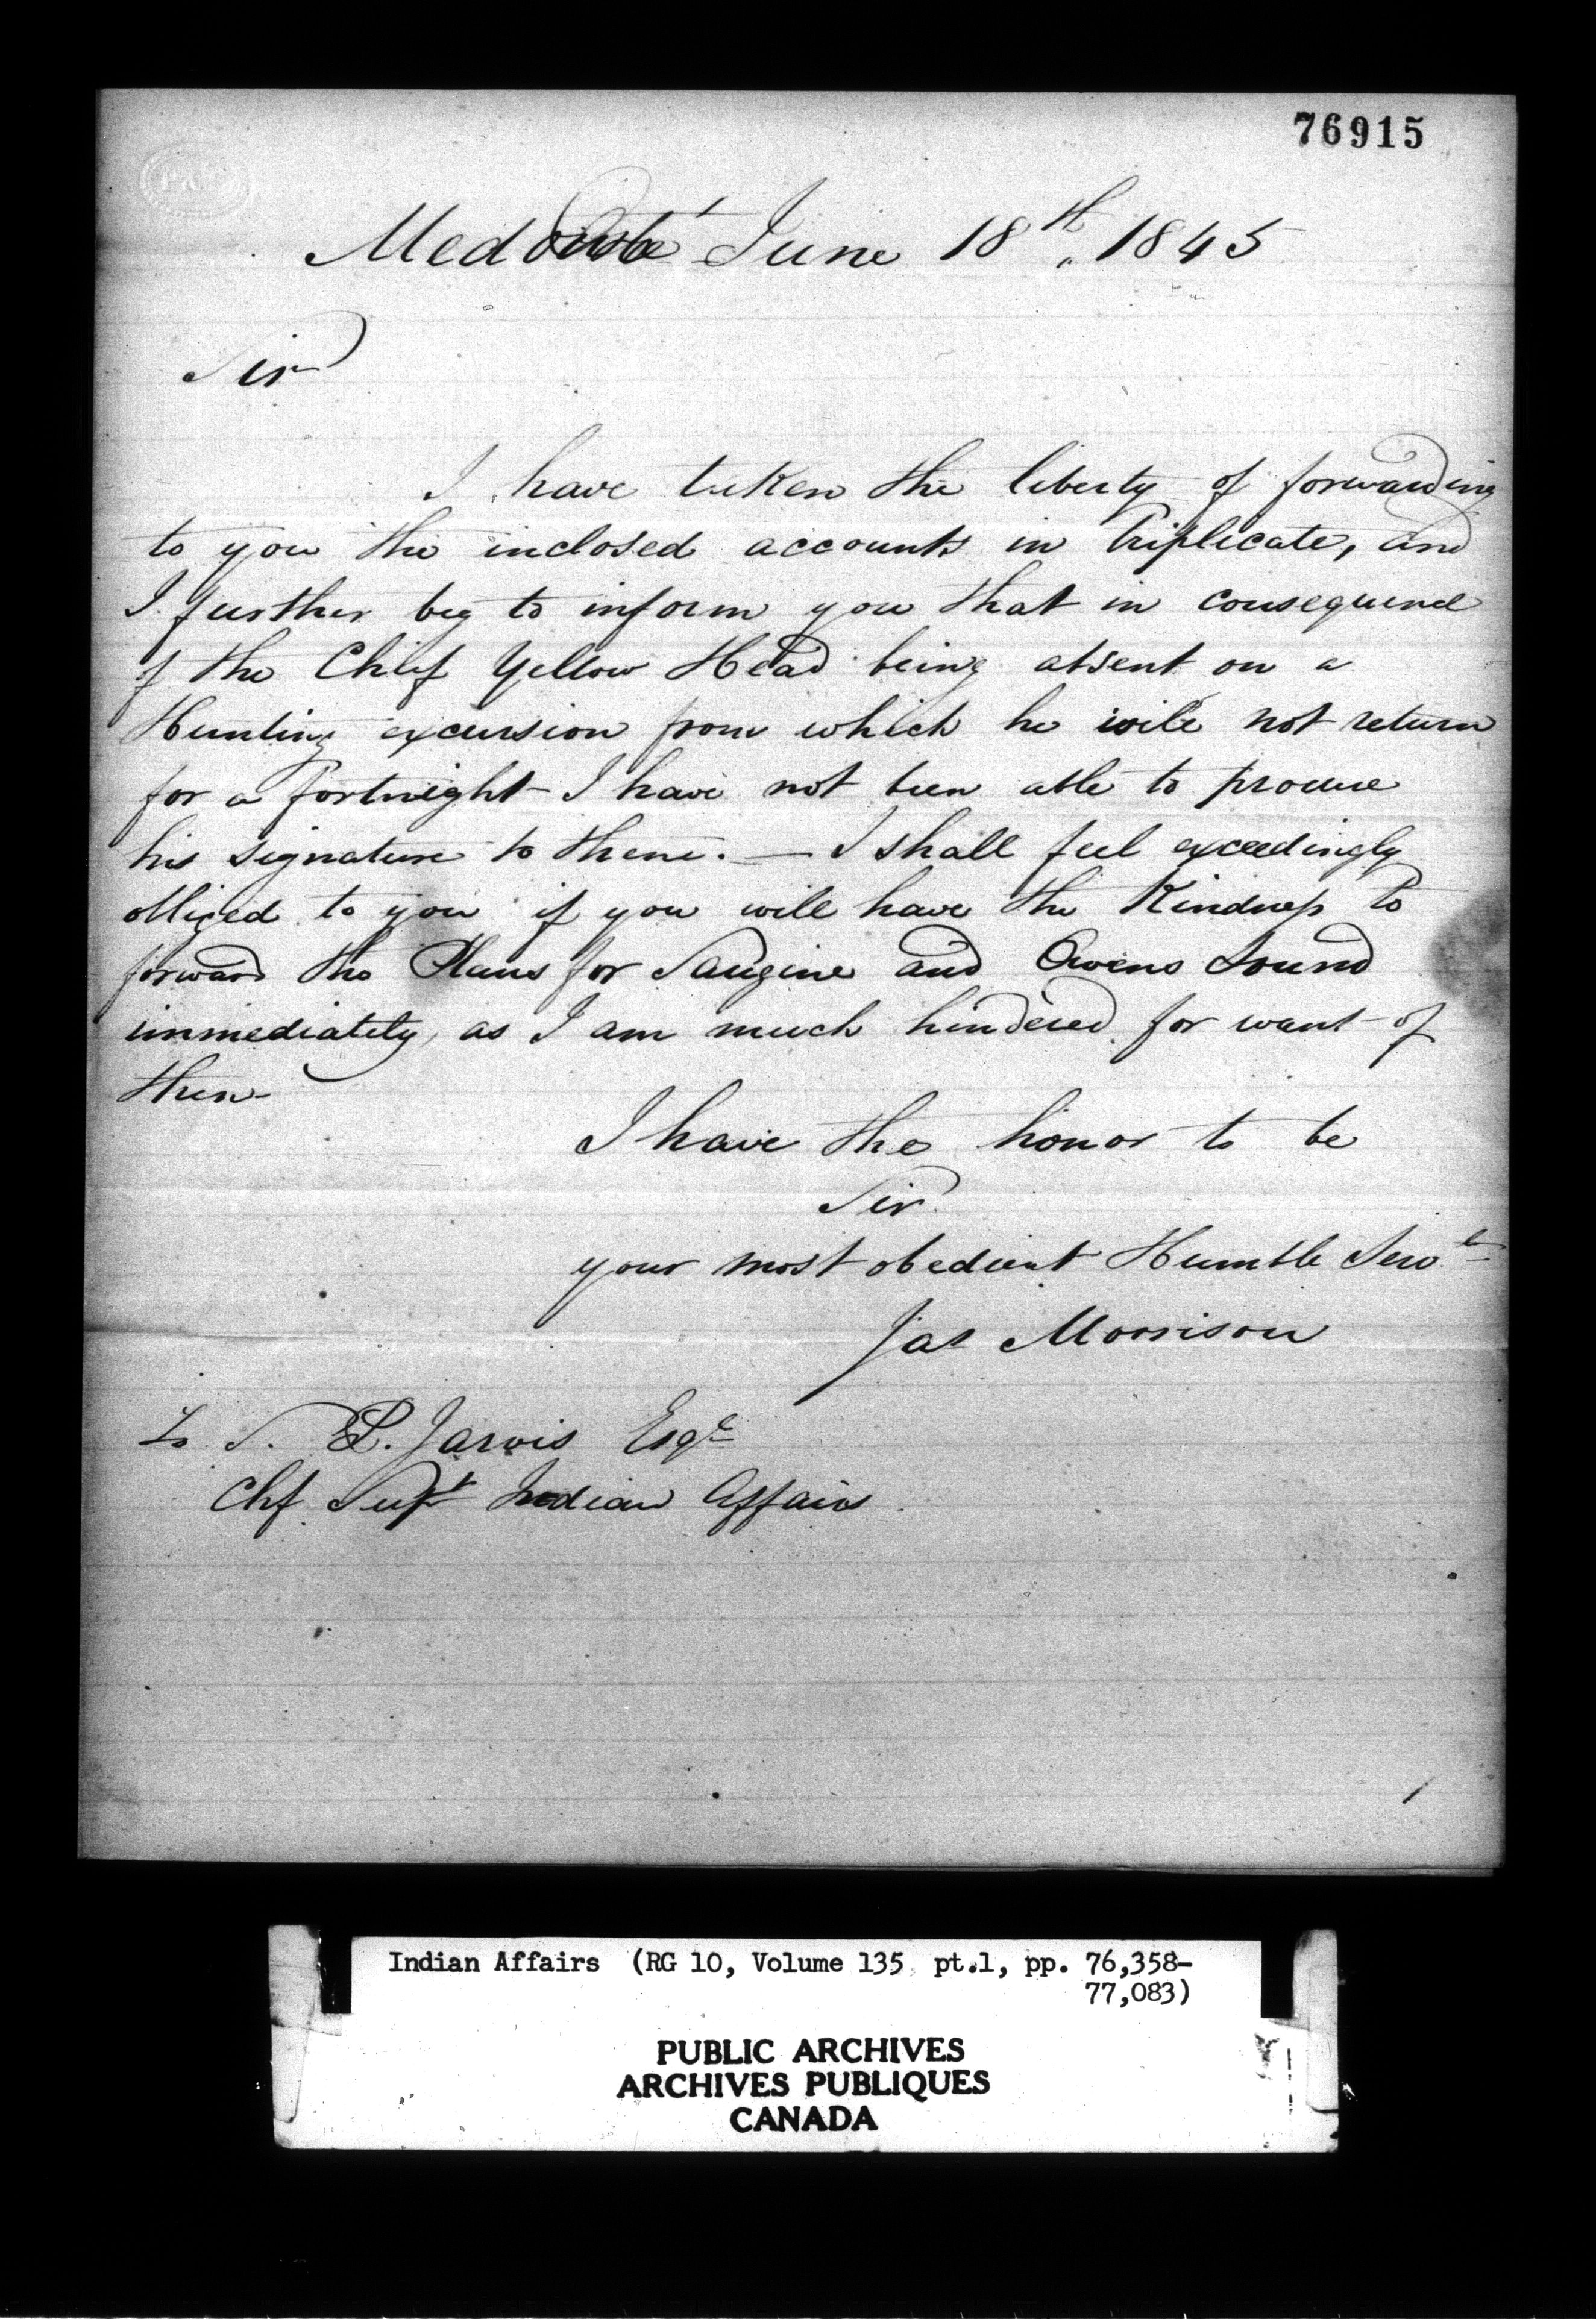 76915
Medonte June 18th, 1845
Sir
I have taken the liberty of forwarding
to you the inclosed accounts in triplicate, and
I further beg to inform you that in consequence
of the Chief Yellow Head being absent on a
Hunting excursion from which he will not return
for a fortnight I have not been able to procure
his signature to them. — I shall feel exceedingly
obliged to you if you will have the Kindness to
forward the Plans for Saugine and Owens Sound
immediately, as I am much hindered for want of
them
I have the honor to be
Sir
your most obedient Humble Servt
Jas Morrison
To S. P. Jarvis Esqr
Chf Supt Indian Affairs
Indian Affairs (RG 10, Volume 135 pt.1, pp. 76,358-
77,083)
PUBLIC ARCHIVES
ARCHIVES PUBLIQUES
CANADA